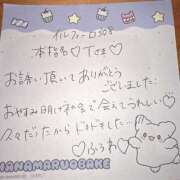 イルフィーロ508
本指名♡Tさま♡
お誘い頂いてありがとう
ございました!
おやすみ明け和室で会えてうれしい♡
久々だったからドキドキした…♡
♡ふうわ♡
HANAMARUOBAKE